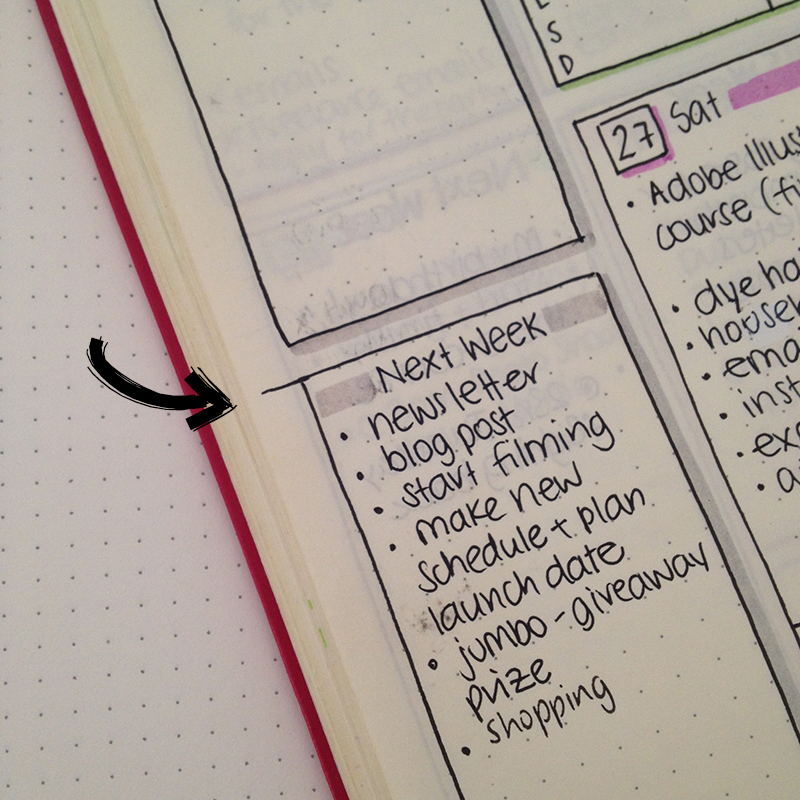 L
S
D
27 Sat
• Adobe Illus
course (fi
• dye ha
• housew
• ema
• inst
• exp
• a
Next Week
• newsletter
• blog post
• start filming
• make new
schedule + plan
launch date
• jumbo-giveaway
prize
• shopping